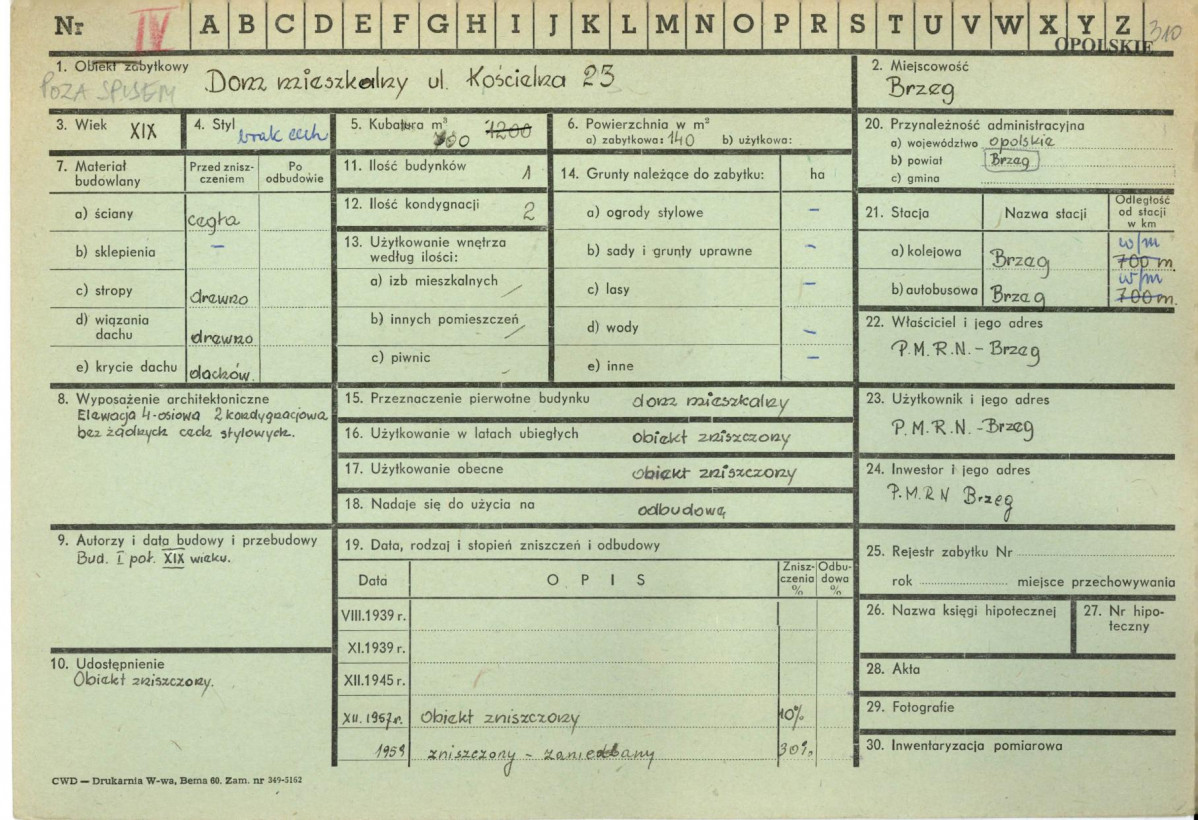 Nr IV A B C D E F G H I J K L M N O P R S T U V W X Y Z 310
OPOLSKIE
1. Obiekt zabytkowy Dom mieszkalny ul. Kościelna 23
POZA SPISEM
2. Miejscowość
Brzeg
3. Wiek XIX
4. Styl brak cech
5. Kubatura m³ 1200
6. Powierzchnia w m²
a) zabytkowa: 140 b) użytkowa:
20. Przynależność administracyjna
a) województwo opolskie
b) powiat Brzeg
c) gmina
7. Materiał budowlany
Przed zniszczeniem
Po odbudowie
a) ściany cegła
b) sklepienia –
c) stropy drewno
d) wiązania dachu drewno
e) krycie dachu dachów.
11. Ilość budynków 1
12. Ilość kondygnacji 2
13. Użytkowanie wnętrza
według ilości:
a) izb mieszkalnych /
b) innych pomieszczeń /
c) piwnic
14. Grunty należące do zabytku: ha
a) ogrody stylowe –
b) sady i grunty uprawne –
c) lasy –
d) wody –
e) inne –
21. Stacja
Nazwa stacji
Odległość
od stacji
w km
a) kolejowa Brzeg w/m 700 m
b) autobusowa Brzeg w/m 700 m.
22. Właściciel i jego adres
P.M.R.N. - Brzeg
8. Wyposażenie architektoniczne
Elewacja 4-osiowa 2 kondygnacjowa
bez żadnych cech stylowych.
15. Przeznaczenie pierwotne budynku dom mieszkalny
16. Użytkowanie w latach ubiegłych obiekt zniszczony
17. Użytkowanie obecne obiekt zniszczony
18. Nadaje się do użycia na odbudowę
23. Użytkownik i jego adres
P.M.R.N. - Brzeg
24. Inwestor i jego adres
P.M.R N Brzeg
9. Autorzy i data budowy i przebudowy
Bud. I poł. XIX wieku.
10. Udostępnienie
Obiekt zniszczony.
19. Data, rodzaj i stopień zniszczeń i odbudowy
Data
O P I S
Zniszczenia %
Odbudowa %
VIII.1939 r.
XI.1939 r.
XII.1945 r.
XII.1957 r. Obiekt zniszczony 10%
1959 zniszczony - zaniedbany 30%
25. Rejestr zabytku Nr
rok miejsce przechowywania
26. Nazwa księgi hipotecznej
27. Nr hipoteczny
28. Akta
29. Fotografie
30. Inwentaryzacja pomiarowa
CWD — Drukarnia W-wa, Bema 60. Zam. nr 349-5162